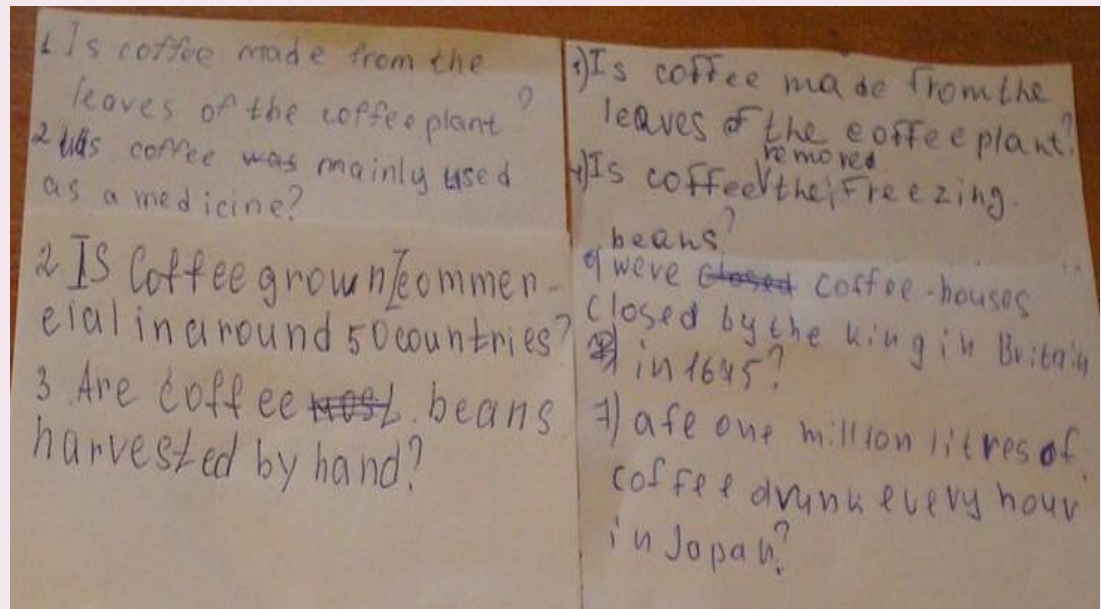 1 Is coffee made from the
leaves of the coffee plant?
2 Was coffee was mainly used
as a medicine?
2 Is Coffee grown commer-
cial in around 50 countries?
3. Are coffee most beans
harvested by hand?
1) Is coffee made from the
leaves of the coffee plant?
removed
4) Is coffee the Freezing.
beans?
6) weve closed coffee-houses
closed by the king in Britain
in 1675?
7) are one million litres of
coffee drunk every hour
in Japan?